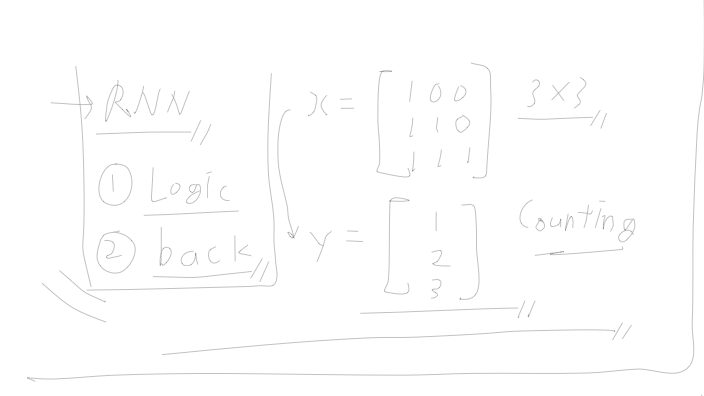 RNN
① Logic
② back
x = [ 1 0 0
1 1 0
1 1 1 ]
3×3
y = [ 1
2
3 ]
Counting